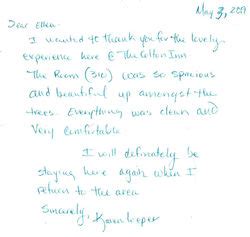 May 3, 2009
Dear Ellen-
I wanted to thank you for the lovely
experience here @ The Cotton Inn
The Room (310) was so spacious
and beautiful up amongst the
trees. Everything was clean and
Very Comfortable
I will definately be
staying here again when I
return to the area
Sincerely, Karen